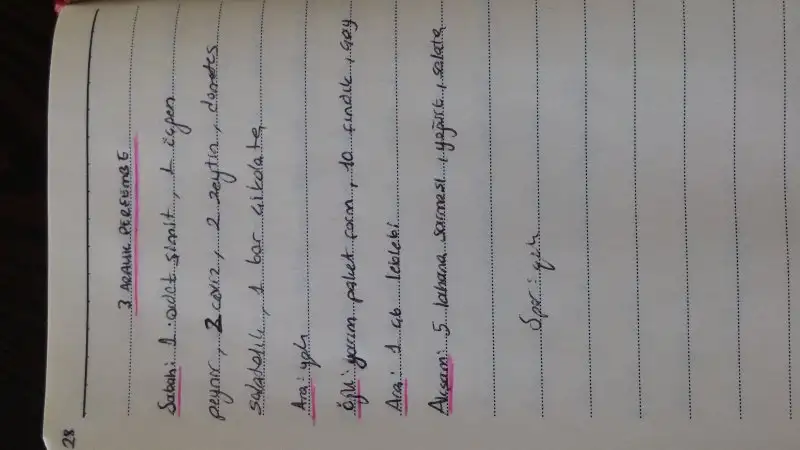 3 ARALIK PERŞEMBE
Sabah: 1 adet simit, 1 üçgen
peynir, 2 ceviz, 2 zeytin, domates
salatalık, 1 bar çikolata
Ara: yok
Öğle: yarım paket form, 10 fındık, çay
Ara: 1 çb leblebi
Akşam: 5 lahana sarması, yoğurt, salata
Spor: yok
28